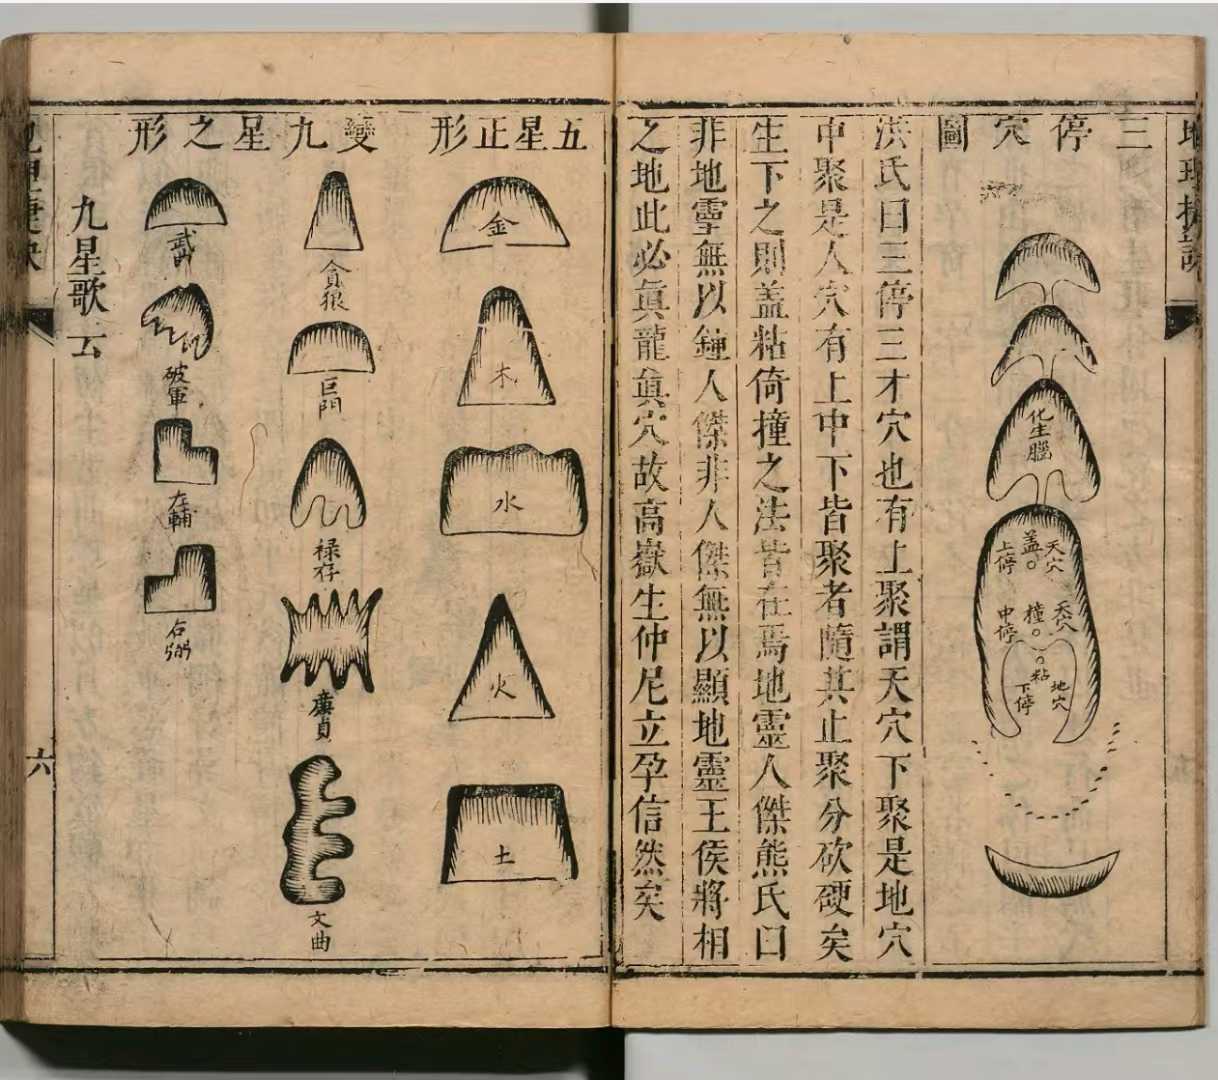 三停穴圖
化生腦
天穴
蓋
上停
天穴
撞
中停
粘
地穴
下停
洪氏曰三停三才穴也有上聚謂天穴下聚是地穴
中聚是人穴有上中下皆聚者隨其止聚分砍硬矣
生下之則蓋粘倚撞之法皆在焉地靈人傑熊氏曰
非地靈無以鍾人傑非人傑無以顯地靈王侯將相
之地此必眞龍眞穴故高嶽生仲尼立孕信然矣
五星正形
金
木
水
火
土
變九星之形
貪狼
巨門
禄存
廉貞
文曲
武
破軍
左輔
右弼
九星歌云
六